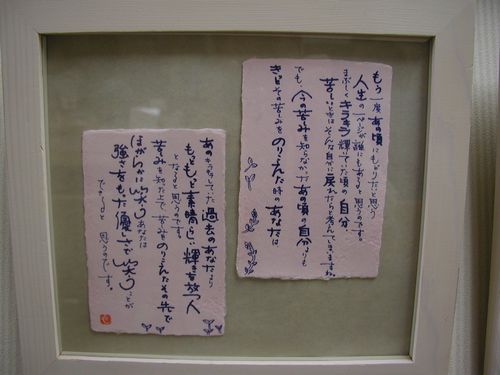 もう一度あの頃にもどりたいと思う
人生の一ページが誰にもあると思うのです。
まぶしくキラキラ輝いていた頃の自分
苦しいときはそんな自分に戻れたらと考えてしまいますね
でも、今の苦みを知らなかったあの頃の自分よりも
きっとその苦みをのりこえた時のあなたは
あのキラキラしていた過去のあなたより
もっともっと素晴らしい輝きを放つ人
となると思うのです。
苦みを知った上で苦みをのりこえたその先で
ほがらかに笑うあなたは
強さをもった優しさで笑うことが
できると思うのです。